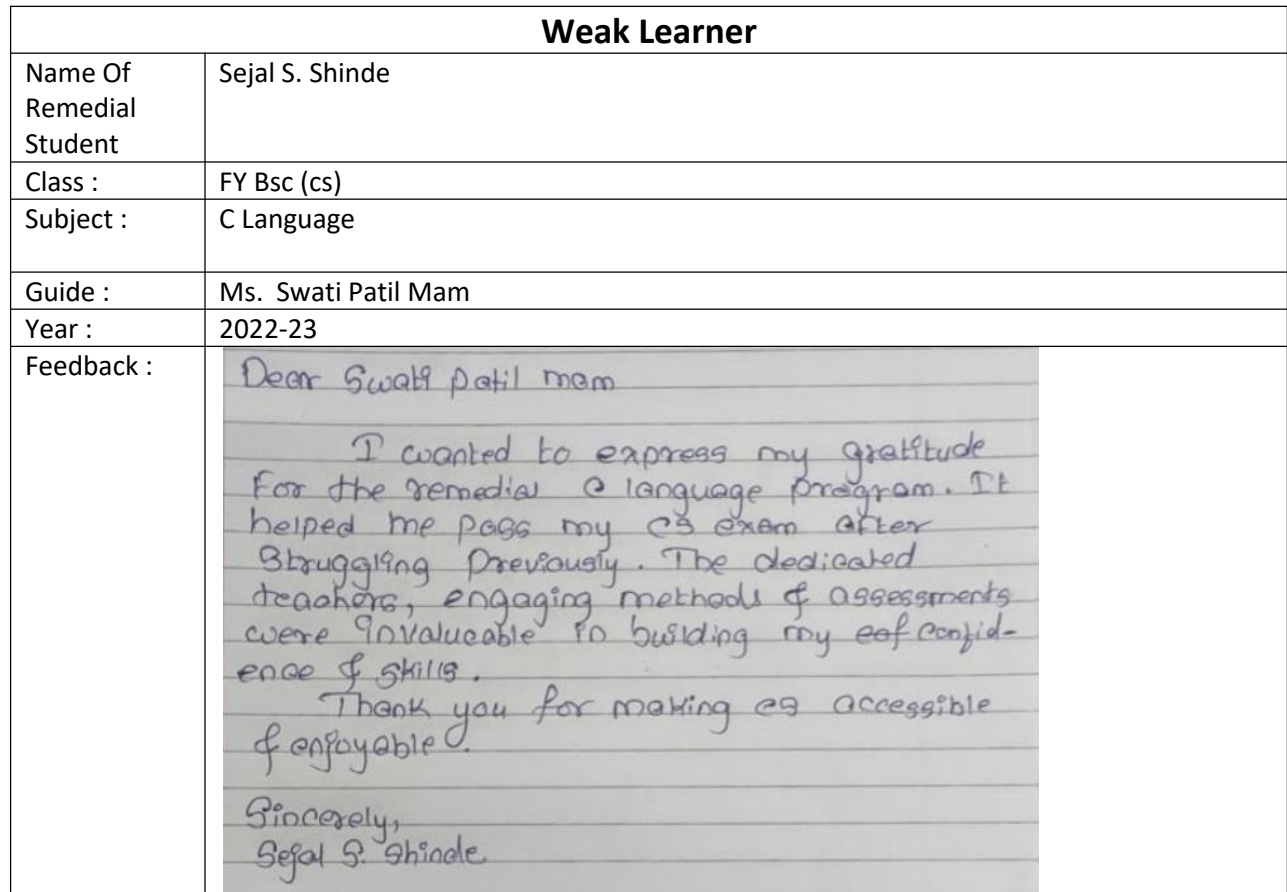 Weak Learner
Name Of Remedial Student Sejal S. Shinde
Class : FY Bsc (cs)
Subject : C Language
Guide : Ms. Swati Patil Mam
Year : 2022-23
Feedback :
Dear Swati Patil mam
I wanted to express my gratitude
For the remedial C language program. It
helped me pass my cs exam after
struggling previously. The dedicated
teachers, engaging methods & assessments
were invaluable in building my confid-
ence & skills.
Thank you for making cs accessible
& enjoyable.
Sincerely,
Sejal S. Shinde